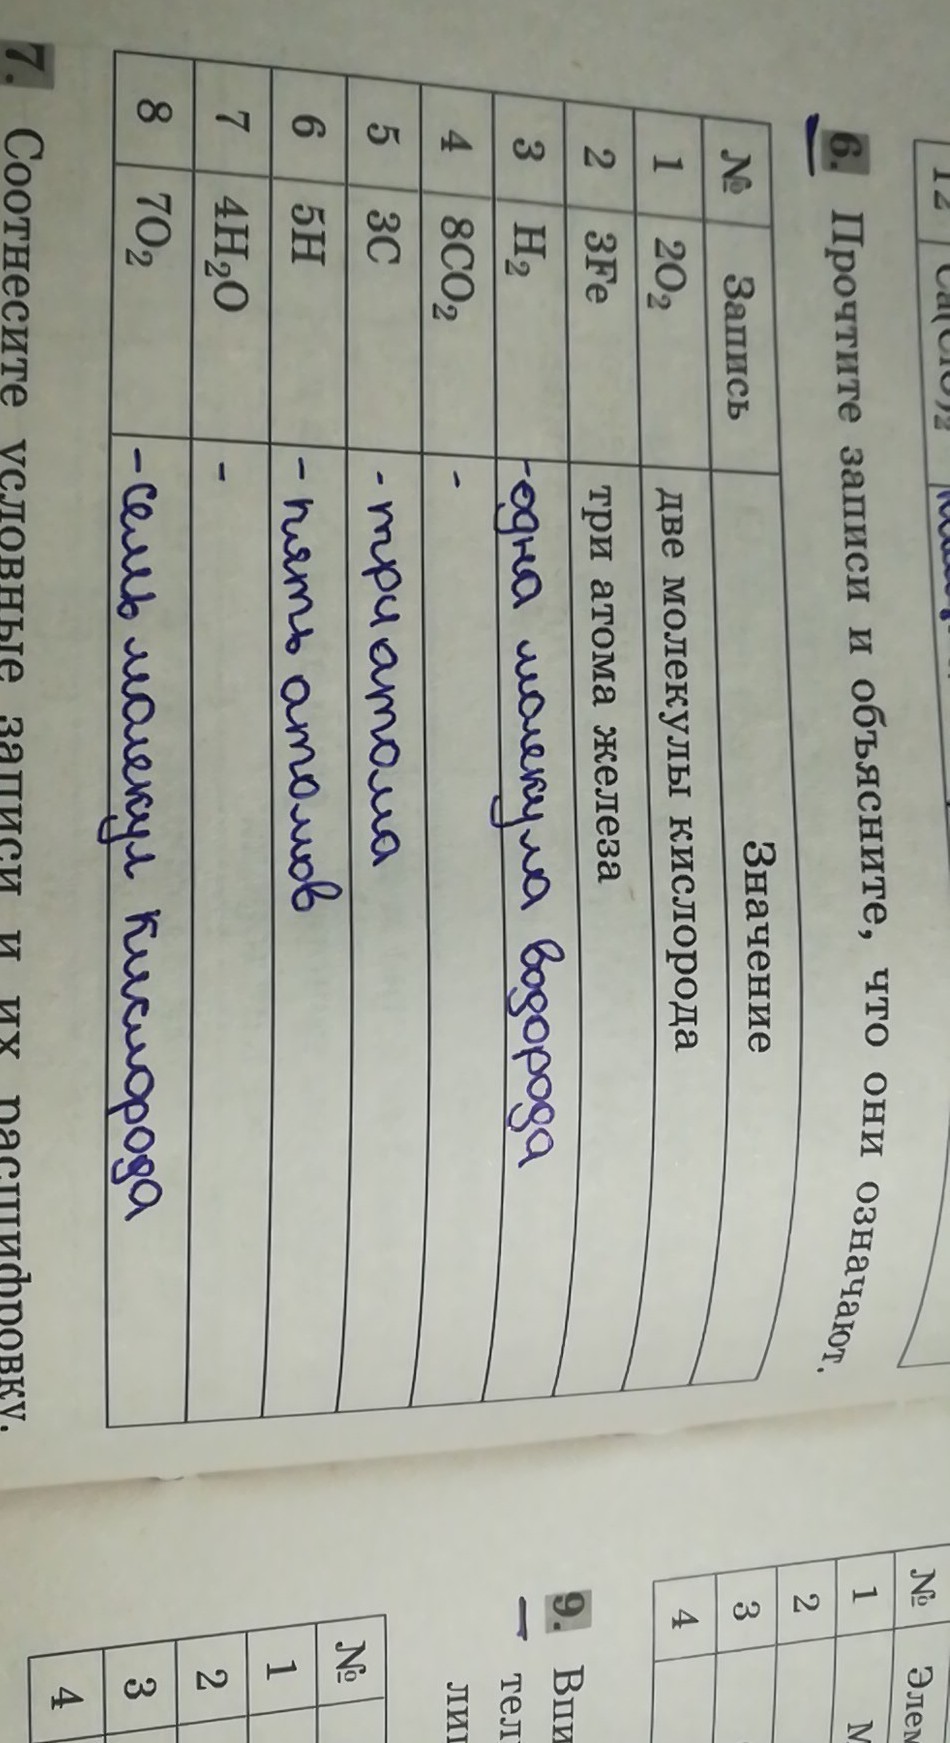 12 Ca(ClO)2
6. Прочтите записи и объясните, что они означают.
№ Запись Значение
1 2O₂ две молекулы кислорода
2 3Fe три атома железа
3 H₂ -одна молекула водорода
4 8CO₂ -
5 3C - три атома
6 5H - пять атомов
7 4H₂O -
8 7O₂ - семь молекул кислорода
7. Соотнесите условные записи и их расшифровку.
№ Элем
1 М
2
3
4
9. Впи
тел
лиц
№
1
2
3
4